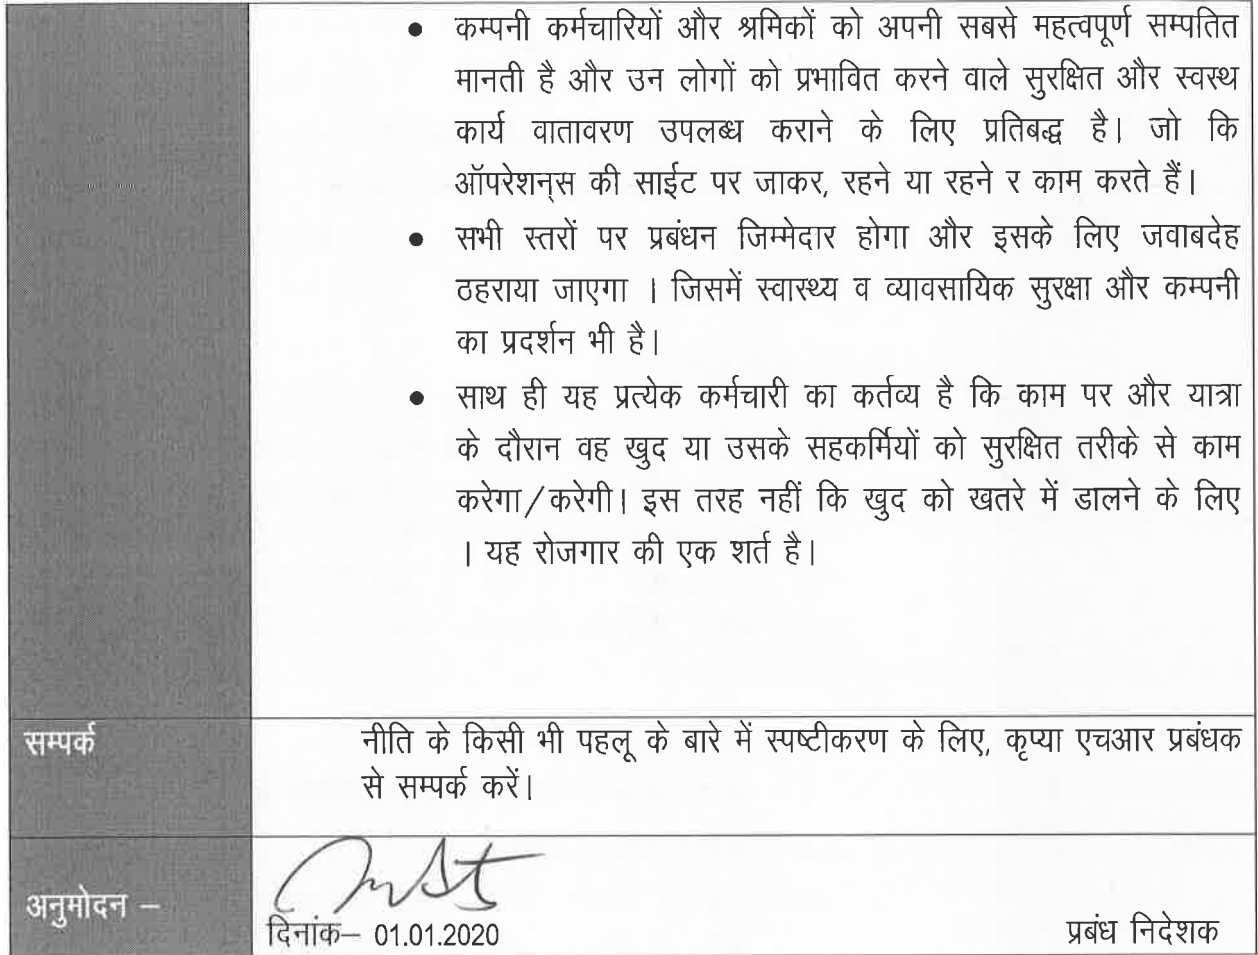 • कम्पनी कर्मचारियों और श्रमिकों को अपनी सबसे महत्वपूर्ण सम्पतित
मानती है और उन लोगों को प्रभावित करने वाले सुरक्षित और स्वस्थ
कार्य वातावरण उपलब्ध कराने के लिए प्रतिबद्ध है। जो कि
ऑपरेशन्स की साईट पर जाकर, रहने या रहने र काम करते हैं।
• सभी स्तरों पर प्रबंधन जिम्मेदार होगा और इसके लिए जवाबदेह
ठहराया जाएगा । जिसमें स्वास्थ्य व व्यावसायिक सुरक्षा और कम्पनी
का प्रदर्शन भी है।
• साथ ही यह प्रत्येक कर्मचारी का कर्तव्य है कि काम पर और यात्रा
के दौरान वह खुद या उसके सहकर्मियों को सुरक्षित तरीके से काम
करेगा/करेगी। इस तरह नहीं कि खुद को खतरे में डालने के लिए
। यह रोजगार की एक शर्त है।
सम्पर्क
नीति के किसी भी पहलू के बारे में स्पष्टीकरण के लिए, कृप्या एचआर प्रबंधक
से सम्पर्क करें।
अनुमोदन –
दिनांक– 01.01.2020
प्रबंध निदेशक